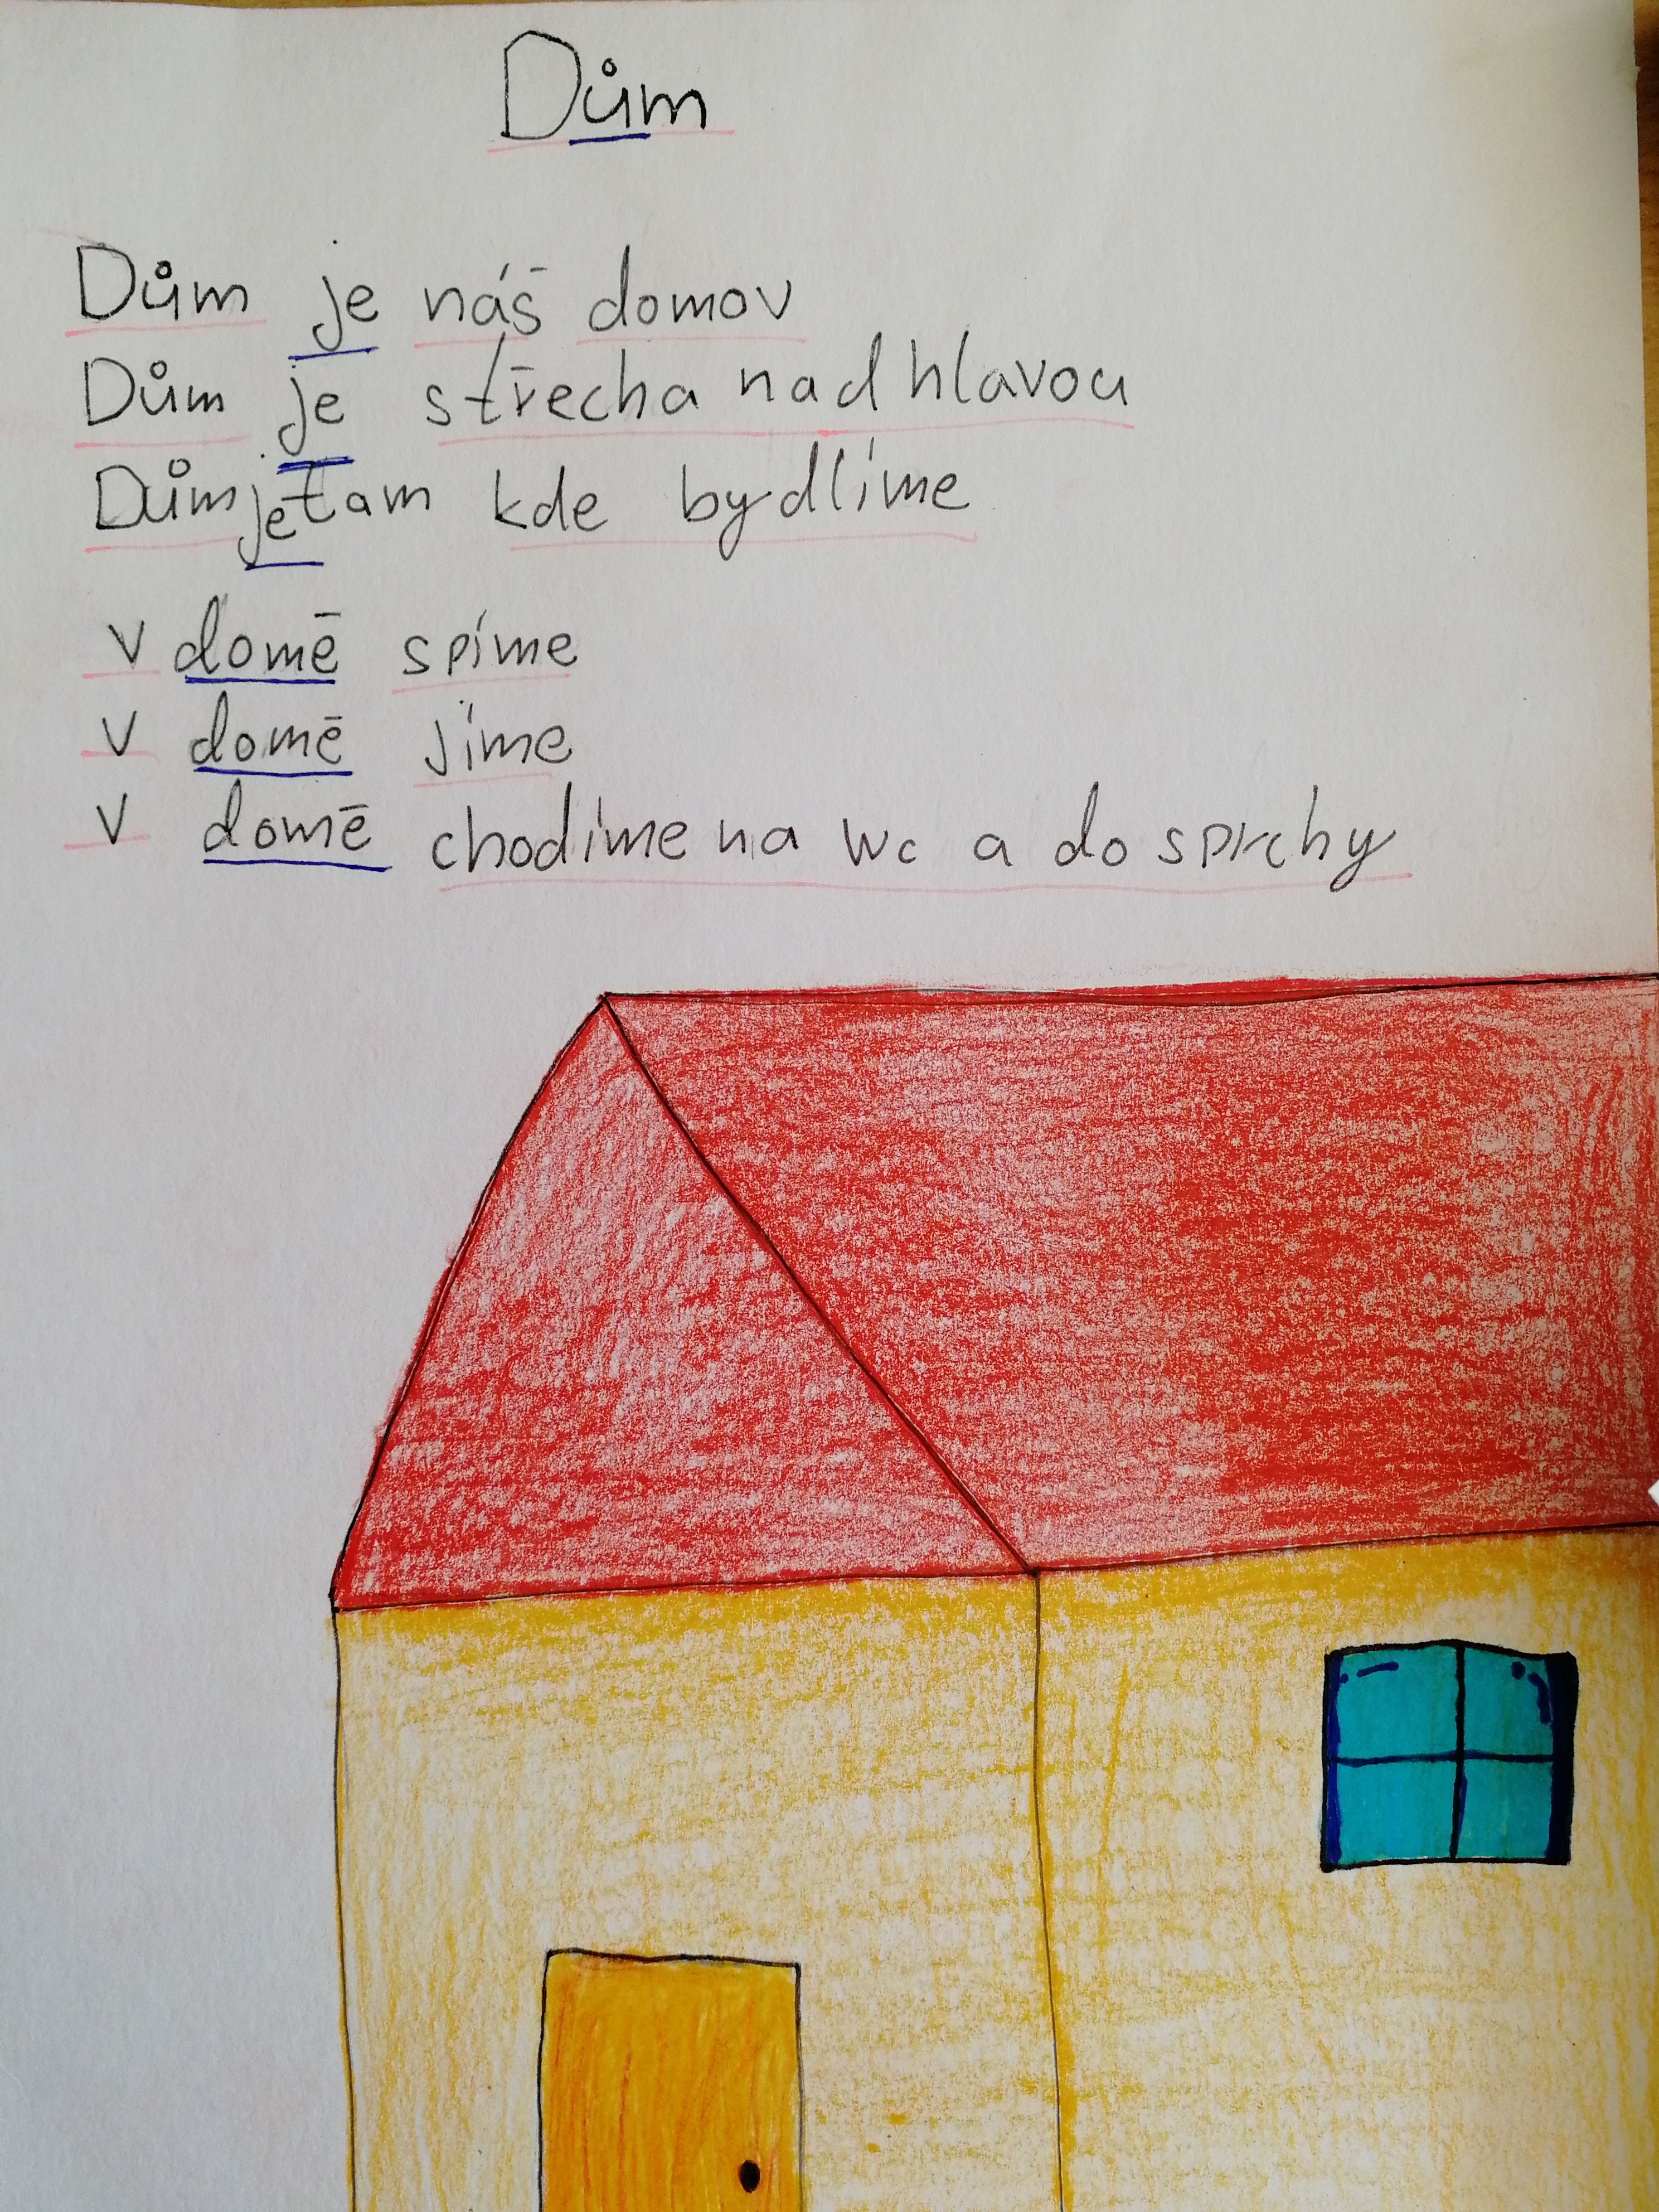 Dům
Dům je náš domov
Dům je střecha nad hlavou
Dům je tam kde bydlíme
v domě spíme
v domě jíme
v domě chodíme na wc a do sprchy